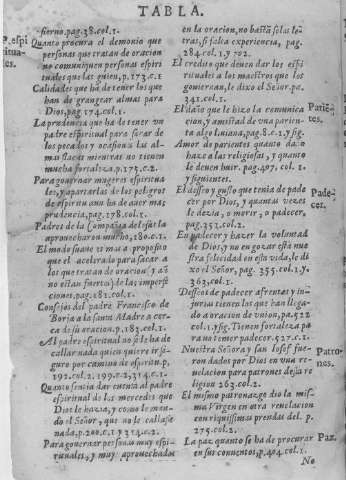 TABLA.
fierno, pag. 38. col. 1.
P. espirituales.
Quanto procura el demonio que
personas que tratan de oracion
no comuniquen personas espirituales
que los guien, p. 173. c. 1
Calidades que ha de tener los que
han de grangear almas para
Dios, pag 174. col. 1.
La prudencia que ha de tener vn
padre espiritual para sacar de
los pecados y ocasiones las almas
flacas mientras no tienen
mucha fortaleza, p. 175. c. 2.
Para gouernar mugeres espirituales,
y apartarlas de los peligros
de espiritu aun ha de auer mas
prudencia, pag. 178. col. 1.
Padres de la Compañia del Iesus la
aprouecharon mucho, 180. c. 1.
El modo suaue es mas a proposito
que el acelerado para sacar a
los que tratan de oracion (y aũ
no estan fuertes) de las imperfeciones,
pag. 181. col. 1.
Consejos del padre Francisco de
Borja a la santa Madre acerca
de su oracion, p. 183. col. 1.
Al padre espiritual no se le ha de
callar nada quien quiere ir seguro
por camino de espiritu, p.
192. col. 2. 199. c. 2, 314. c. 1.
Quanto sentia dar cuenta al padre
espiritual de las mercedes que
Dios le hazia, y como le mando
el Señor, que no le callasse
nada, p. 200. c. 1 y 314. c. 2.
Para gouernar personas muy espirituales,
y muy aprouechadas
en la oracion, no bastã solas letras,
si falta experiencia, pag.
284. col. 1. y 702.
El credito que deuen dar los espirituales
a los maestros que los
gouiernan, le dixo el Señor, pa.
341. col. 1.
Parientes.
El daño que le hizo la comunicacion,
y amistad de vna parienta
algo liuiana, pag. 8. c. 2. y sig.
Amor de parientes quanto daño
haze a las religiosas, y quanto
le deuen huir. pag. 407. col. 1
y siguientes.
Padecer.
El desseo y gusto que tenia de padecer
por Dios, y quantas vezes
le dezia, o morir, o padecer,
pag. 353. col. 2.
En padecer y hazer la voluntad
de Dios, y no en gozar està nuestra
felicidad en esta vida, le dixo
el Señor, pag. 355. col. 1. y
363. col. 1.
Desseos de padecer afrentas y injurias
tienen los que han llegado
a oracion de vnion, pa. 522
col. 1. y sig. Tienen fortaleza para
no temer padecer. 527. c. 1.
Patrones.
Nuestra Señora y san Iosef fueron
dados por Dios en vna reuelacion
para patrones desta religion
263. col. 2.
El mismo patronazgo dio la misma
Virgen en otra reuelacion
con riquissimas prendas del. p.
275. col. 2.
Paz.
La paz quanto se ha de procurar
en sus conuentos, p. 404. col. 1.
No